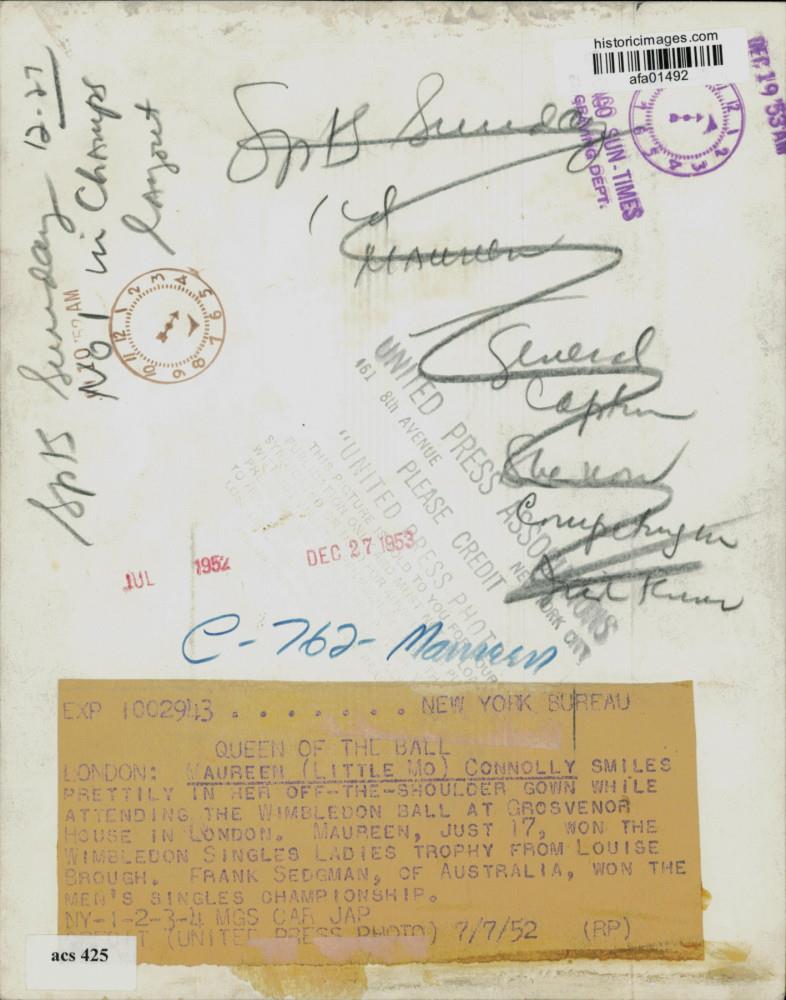 historicimages.com
afa01492
DEC 19 53 AM
SUN-TIMES
DEPT.
Spts Sunday 12-27
No 1 in Champs
layout
Spts Sunday
Maureen
General
Caption
She now
Competing in
UNITED PRESS ASSOCIATIONS
461 8th AVENUE NEW YORK CITY
PLEASE CREDIT
"UNITED PRESS PHOTO
THIS PICTURE IS SOLD TO YOU FOR YOUR
JUL 1952
DEC 27 1953
C-762- Maureen
EXP 1002943 . . . . . . . . NEW YORK BUREAU
QUEEN OF THE BALL
LONDON: MAUREEN (LITTLE MO) CONNOLLY SMILES
PRETTILY IN HER OFF-THE-SHOULDER GOWN WHILE
ATTENDING THE WIMBLEDON BALL AT GROSVENOR
HOUSE IN LONDON. MAUREEN, JUST 17, WON THE
WIMBLEDON SINGLES LADIES TROPHY FROM LOUISE
BROUGH. FRANK SEDGMAN, OF AUSTRALIA, WON THE
MEN'S SINGLES CHAMPIONSHIP.
NY-1-2-3-4 MGS CAR JAP
(UNITED PRESS PHOTO) 7/7/52 (RP)
acs 425